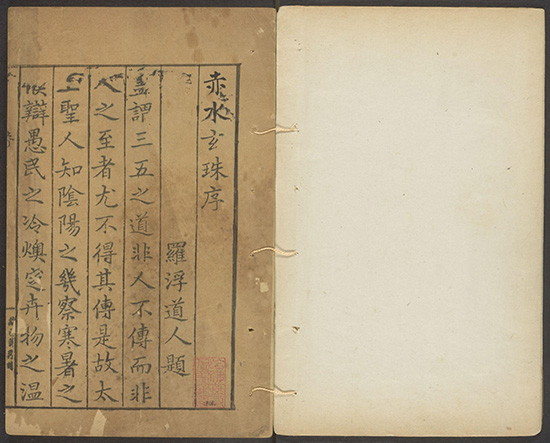 赤水玄珠序
羅浮道人題
盖謂三五之道非人不傳而非
人之至者尤不得其傳是故太
上聖人知陰陽之幾察寒暑之
辯愚民之冷燠定卉物之温